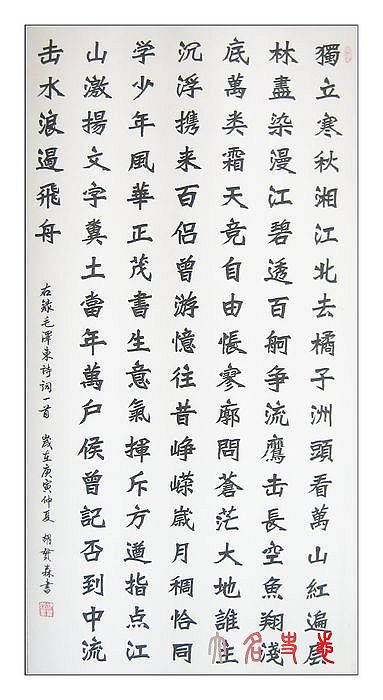 獨立寒秋湘江北去橘子洲頭看萬山紅遍层
林盡染漫江碧透百舸争流鷹击長空魚翔淺
底萬类霜天竞自由悵寥廓問蒼茫大地誰主
沉浮携来百侣曾游憶往昔峥嵘歲月稠恰同
学少年風華正茂書生意氣揮斥方遒指点江
山激揚文字糞土當年萬户侯曾記否到中流
击水浪遏飛舟
右錄毛澤東詩詞一首 歲在庚寅仲夏 胡森書